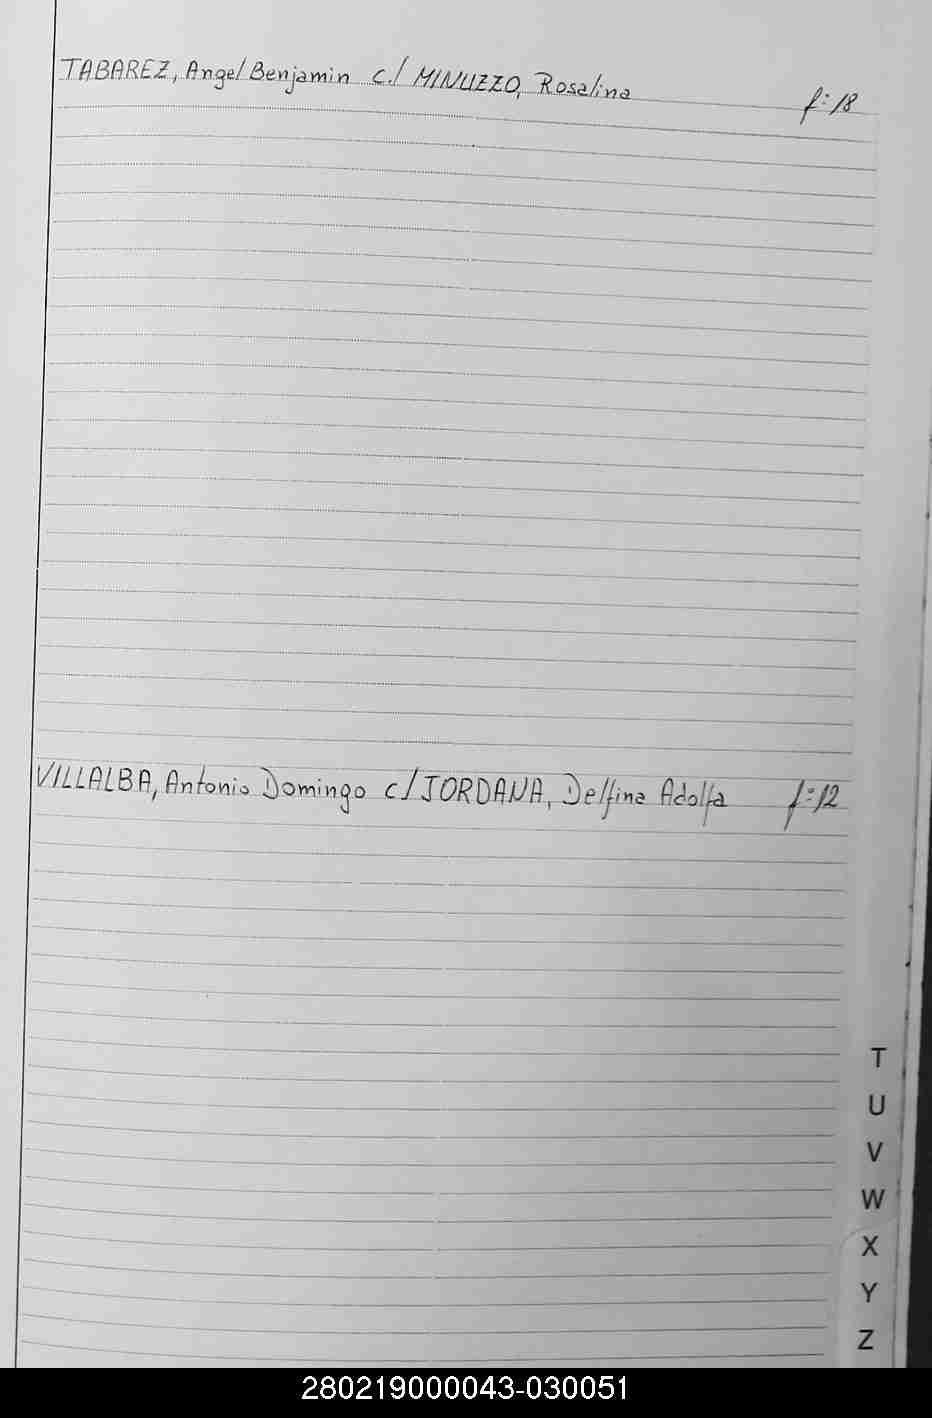 TABAREZ, Angel Benjamin c./ MINUZZO, Rosalina f: 18
VILLALBA, Antonio Domingo c/ JORDANA, Delfina Adolfa f: 12
T
U
V
W
X
Y
Z
280219000043-030051